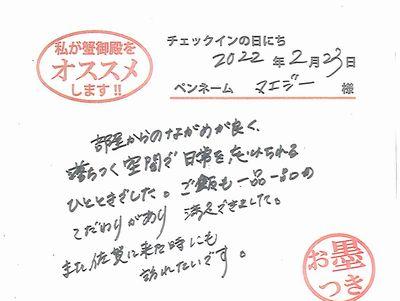 私が蟹御殿を
オススメ
します!!
チェックインの日にち
2022年2月23日
ペンネーム マエジー 様
部屋からのながめが良く、
落ちつく空間で日常を忘れられる
ひとときでした。ご飯も一品一品の
こだわりがあり 満足できました。
また佐賀に来た時にも
訪れたいです。
お墨
つき